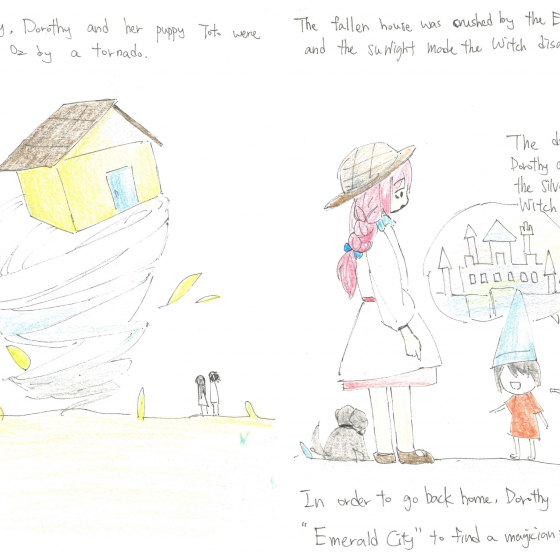 Dorothy and her puppy Toto were
Oz by a tornado.
The fallen house was crushed by the
and the sunlight made the Witch
The
Dorothy
the
Witch
In order to go back home, Dorothy
"Emerald City" to find a magician